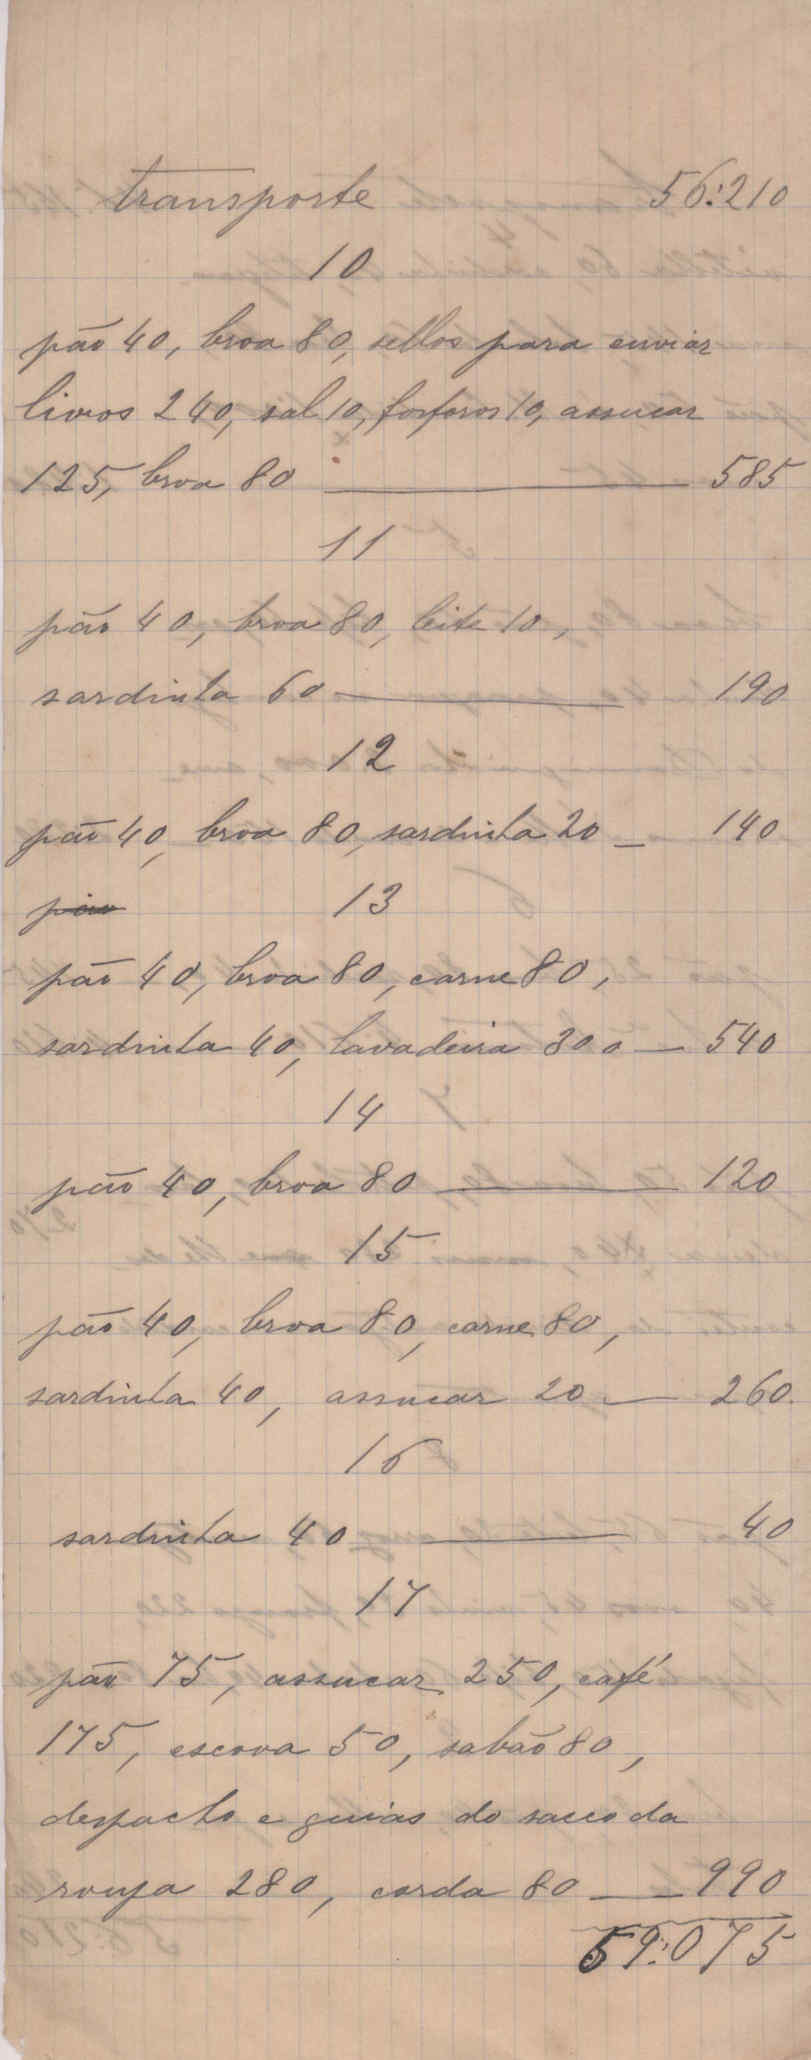 transporte 56:210
10
pão 40, broa 80, sellos para enviar
livros 240, sal 10, fosforos 10, assucar
125, broa 80 — 585
11
pão 40, broa 80, leite 10,
sardinha 60 — 190
12
pão 40, broa 80, sardinha 20 — 140
pão 13
pão 40, broa 80, carne 80,
sardinha 40, lavadeira 300 — 540
14
pão 40, broa 80 — 120
15
pão 40, broa 80, carne 80,
sardinha 40, assucar 20 — 260.
16
sardinha 40 — 40
17
pão 75, assucar 250, café
175, escova 50, sabão 80,
despacho e guias do sacco da
roupa 280, corda 80 — 990
59:075